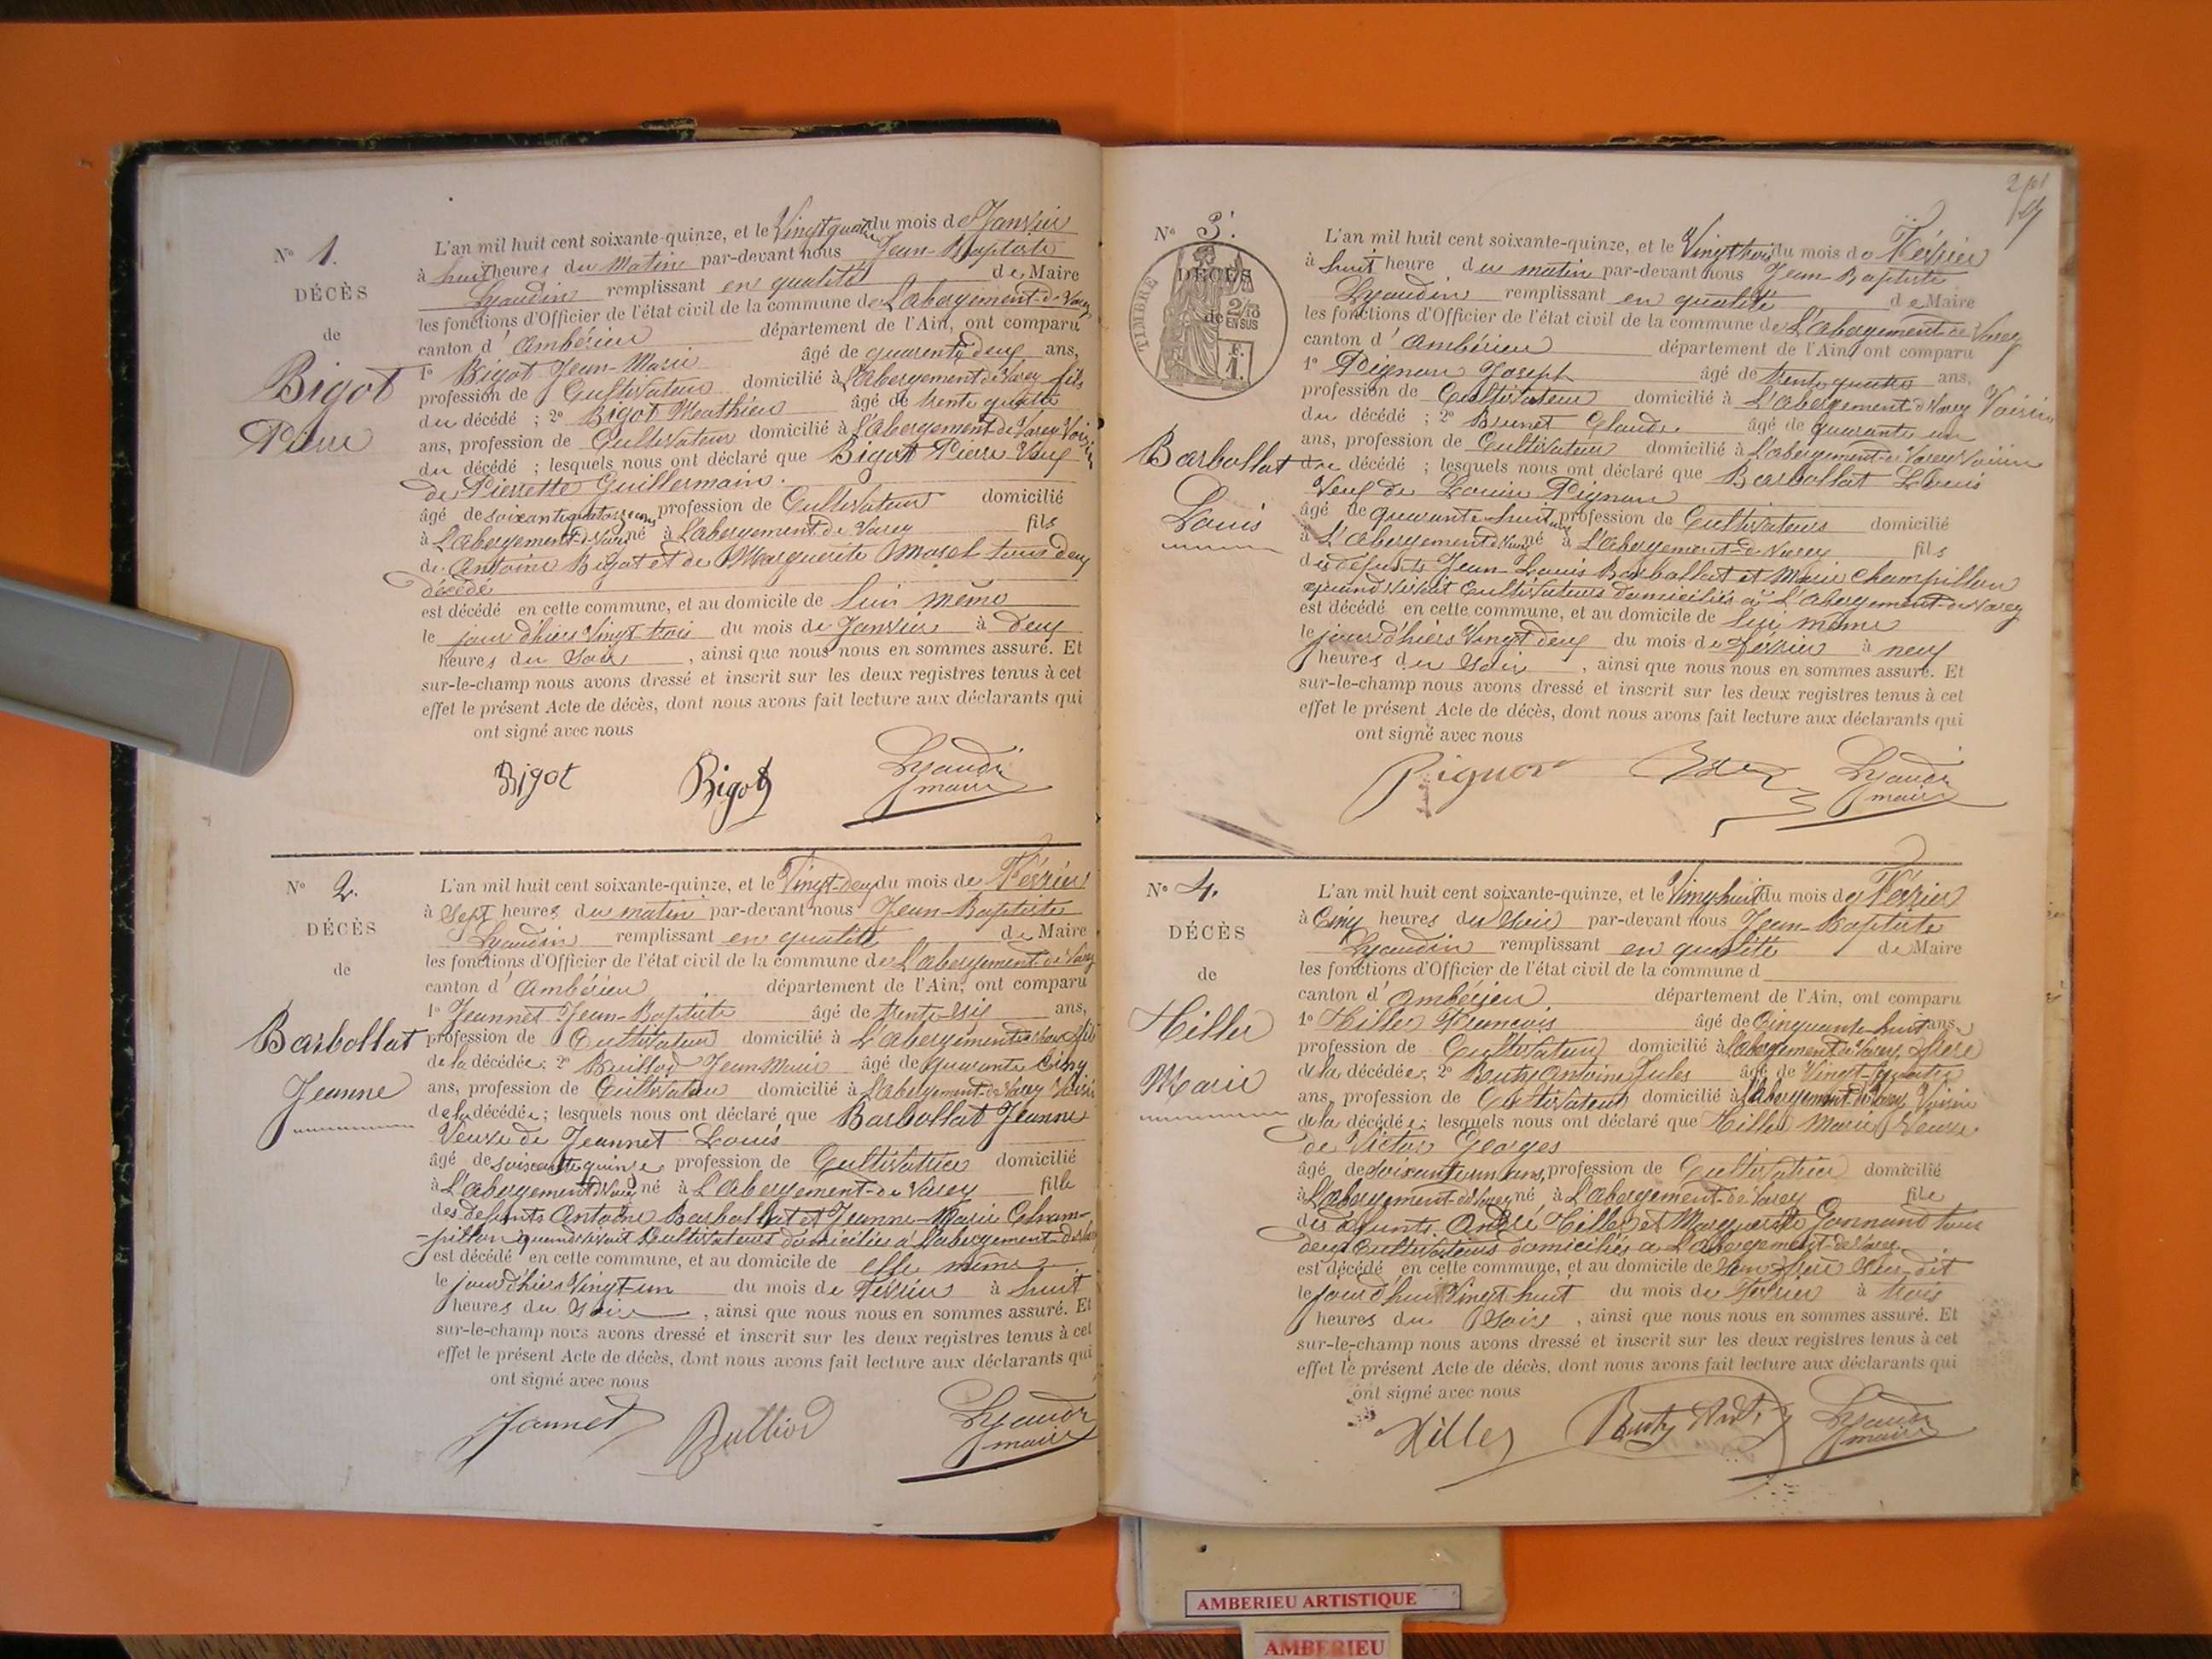 N° 1.
DÉCÈS
de
Bigot
Pierre
L'an mil huit cent soixante-quinze, et le Vingt quatre du mois de Janvier
à huit heures du Matin par-devant nous Jean-Baptiste
Lyaudin remplissant en qualité de Maire
les fonctions d'Officier de l'état civil de la commune de L'abergement-de Varey
canton d'Ambérieu département de l'Ain, ont comparu
1° Bigot Jean-Marie âgé de quarente deux ans,
profession de Cultivateur domicilié à L'abergement de Varey fils
du décédé ; 2° Bigot Mathieu âgé de trente quatre
ans, profession de Cultivateur domicilié à L'abergement de Varey Voisin
du décédé ; lesquels nous ont déclaré que Bigot Pierre Veuf
de Pierrette Guillermain.
âgé de soixante quatorze ans profession de Cultivateur domicilié
à L'abergement-de Varey né à L'abergement-de Varey fils
de Antoine Bigot et de Marguerite Morel tous deux
décédé
est décédé en cette commune, et au domicile de lui même
le jour d'hiers Vingt trois du mois de Janvier à deux
heures du Soir, ainsi que nous nous en sommes assuré. Et
sur-le-champ nous avons dressé et inscrit sur les deux registres tenus à cet
effet le présent Acte de décès, dont nous avons fait lecture aux déclarants qui
ont signé avec nous
Bigot Bigot Lyaudin
maire
N° 2.
DÉCÈS
de
Barbollat
Jeanne
L'an mil huit cent soixante-quinze, et le Vingt-deux du mois de Février
à Sept heures du matin par-devant nous Jean-Baptiste
Lyaudin remplissant en qualité de Maire
les fonctions d'Officier de l'état civil de la commune de L'abergement-de Varey
canton d'Ambérieu département de l'Ain, ont comparu
1° Jeannet Jean-Baptiste âgé de trente-six ans,
profession de Cultivateur domicilié à L'abergement de Varey fils
de la décédée; 2° Bulliod Jean-Marie âgé de quarante Cinq
ans, profession de Cultivateur domicilié à L'abergement-de Varey Voisin
de la décédée; lesquels nous ont déclaré que Barbollat Jeanne
Veuve de Jeannet Louis
âgé de soixante quinze profession de Cultivatrice domicilié
à L'abergement de Varey né à L'abergement-de Varey fille
des defunts Antoine Barbollat et Jeanne-Marie Cham-
-pillon quand vivait Cultivateurs domiciliés à L'abergement-de Varey
est décédé en cette commune, et au domicile de elle même
le jour d'hiers Vingt-un du mois de Février à huit
heures du Soir, ainsi que nous nous en sommes assuré. Et
sur-le-champ nous avons dressé et inscrit sur les deux registres tenus à cet
effet le présent Acte de décès, dont nous avons fait lecture aux déclarants qui
ont signé avec nous
Jannet Bulliod Lyaudin
maire
N° 3.
TIMBRE
DÉCÈS
de
2/10
EN SUS
F.
1.
Barbollat
Louis
L'an mil huit cent soixante-quinze, et le Vingt trois du mois de Février
à huit heure du matin par-devant nous Jean-Baptiste
Lyaudin remplissant en qualité de Maire
les fonctions d'Officier de l'état civil de la commune de L'abergement-de Varey
canton d'Ambérieu département de l'Ain, ont comparu
1° Pignon Joseph âgé de trente quatre ans,
profession de Cultivateur domicilié à L'abergement de Varey Voisin
du décédé ; 2° Brunet Claude âgé de quarante un
ans, profession de Cultivateur domicilié à L'abergement-de Varey Voisin
du décédé ; lesquels nous ont déclaré que Barbollat Louis
Veuf de Louise Pignon
âgé de quarante huit ans profession de Cultivateurs domicilié
à L'abergement de Varey né à L'abergement-de Varey fils
de défunts Jean-Louis Barbollat et Marie Champillon
quand vivait Cultivateurs domiciliés à L'abergement-de Varey
est décédé en cette commune, et au domicile de lui même
le jour d'hiers Vingt deux du mois de Février à neuf
heures du Soir, ainsi que nous nous en sommes assuré. Et
sur-le-champ nous avons dressé et inscrit sur les deux registres tenus à cet
effet le présent Acte de décès, dont nous avons fait lecture aux déclarants qui
ont signé avec nous
Pignon Lyaudin
maire
N° 4.
DÉCÈS
de
Hiller
Marie
L'an mil huit cent soixante-quinze, et le Vingt huit du mois de Février
à Cinq heures du Soir par-devant nous Jean-Baptiste
Lyaudin remplissant en qualité de Maire
les fonctions d'Officier de l'état civil de la commune d
canton d'Ambérieu département de l'Ain, ont comparu
1° Hiller Francois âgé de Cinquante-huit ans,
profession de Cultivateur domicilié à L'abergement de Varey frère
de la décédée; 2° Buty Antoine Jules âgé de Vingt-quatre
ans, profession de Cultivateur domicilié à L'abergement de Varey Voisin
de la décédée; lesquels nous ont déclaré que Hiller Marie Veuve
de Victor Georges
âgé de soixante un ans, profession de Cultivatrice domicilié
à L'abergement-de Varey né à L'abergement-de Varey fille
des défunts André Hiller et Marguerite Gonnand tous
deux Cultivateurs domiciliés a L'abergement-de Varey
est décédé en cette commune, et au domicile de son frère sus-dit
le jour d'hui Vingt huit du mois de Février à trois
heures du Soir, ainsi que nous nous en sommes assuré. Et
sur-le-champ nous avons dressé et inscrit sur les deux registres tenus à cet
effet le présent Acte de décès, dont nous avons fait lecture aux déclarants qui
ont signé avec nous
Hiller Buty Lyaudin
maire
AMBERIEU ARTISTIQUE
AMBERIEU